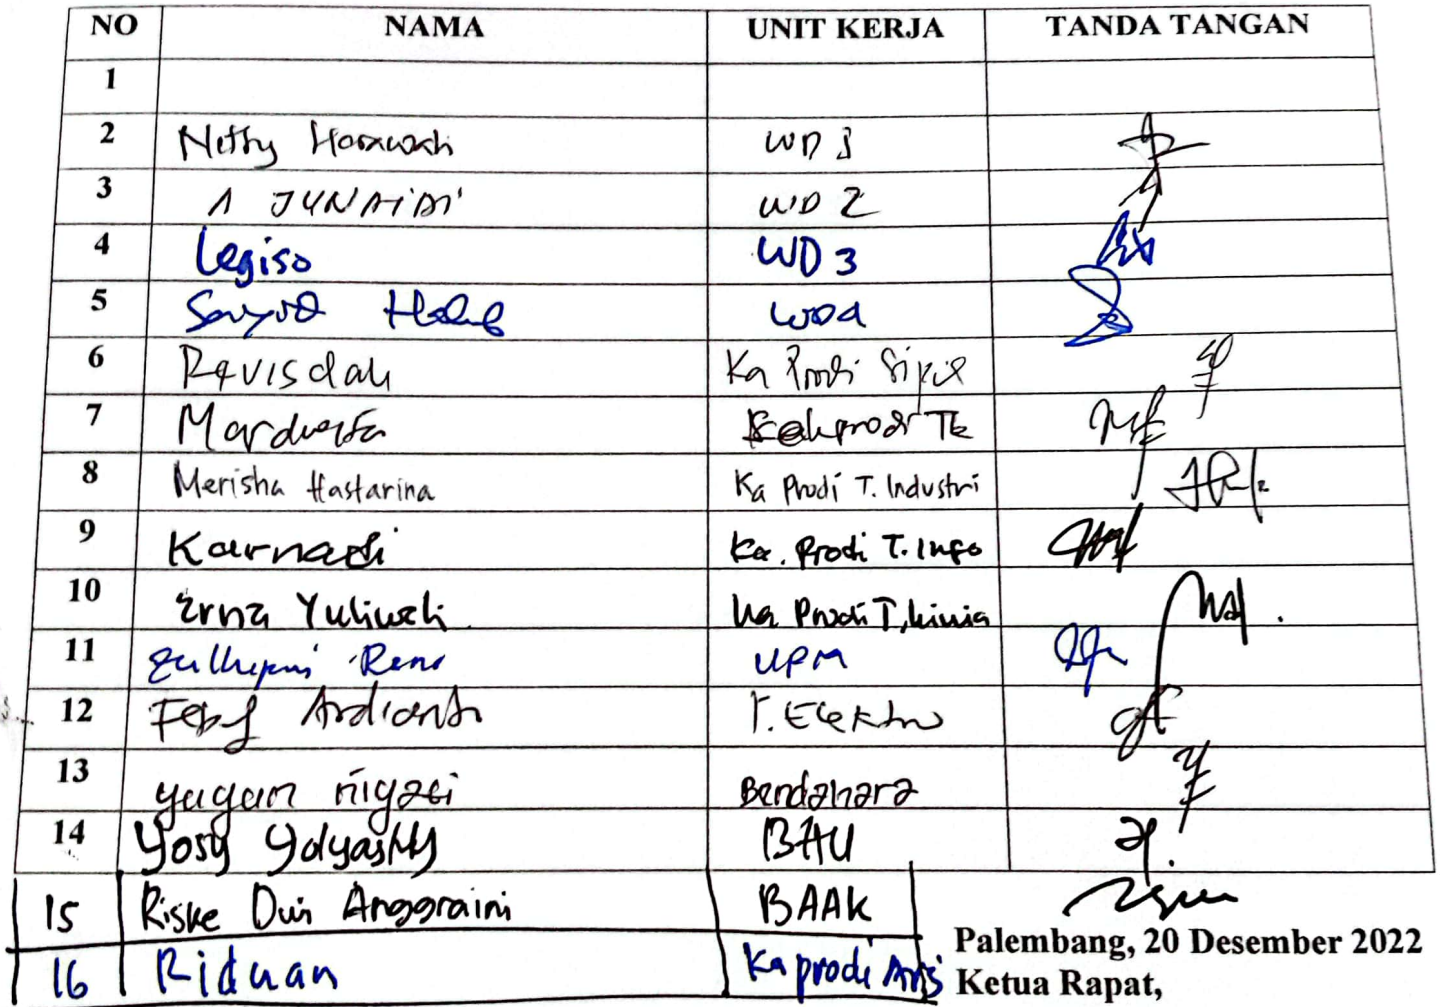 NO NAMA UNIT KERJA TANDA TANGAN
1
2 Netty Herawati WD 1
3 A JUNAIDI WD 2
4 Legiso WD 3
5 WD4
6 Revisdah Ka Prodi Sipil
7 Mardwita Kaprodi TK
8 Merisha Hastarina Ka Prodi T. Industri
9 Karnadi Ka. Prodi T. Info
10 Erna Yuliwati Ka Prodi T, kimia
11 UPM
12 Feby Ardianto T. Elektro
13 Bendahara
14 BAU
15 Riske Dwi Anggraini BAAK
16 Riduan Kaprodi Ars
Palembang, 20 Desember 2022
Ketua Rapat,